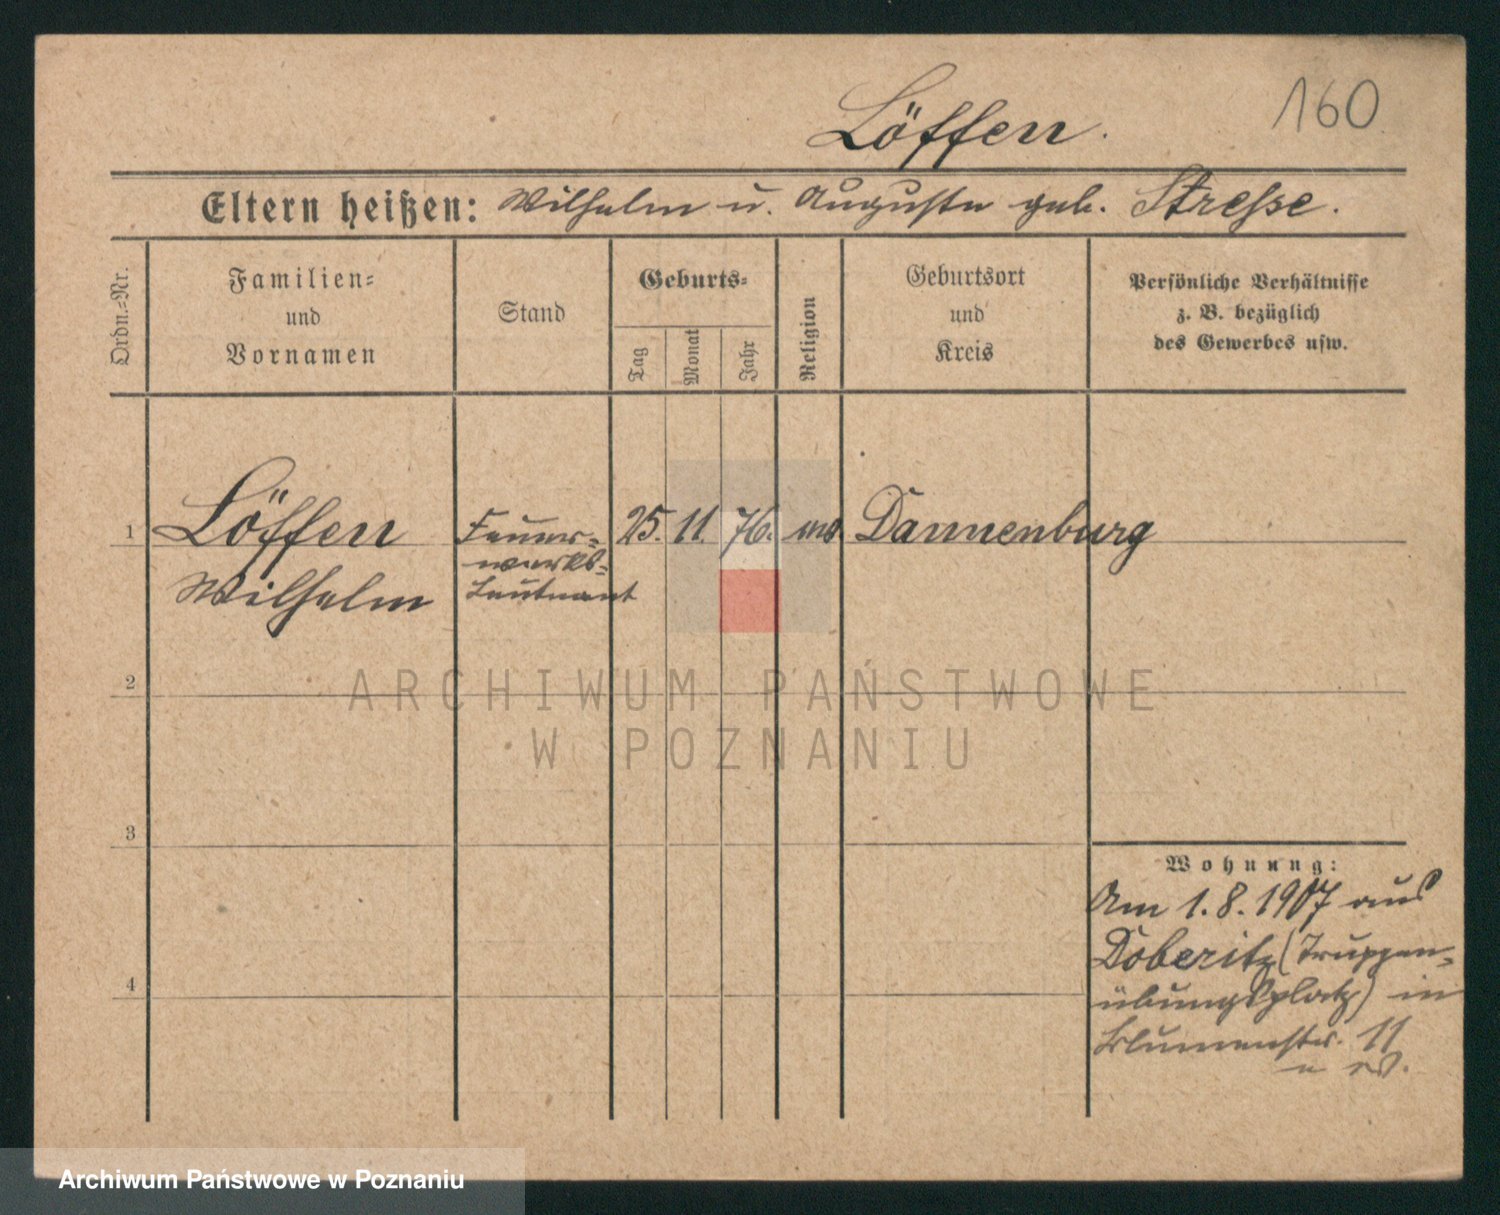 160
Löffen.
Eltern heißen: Wilhelm u. Auguste geb. Stresse.
Ordn.-Nr.
Familien-
und
Vornamen
Stand
Geburts-
Tag
Monat
Jahr
Religion
Geburtsort
und
Kreis
Persönliche Verhältnisse
z. B. bezüglich
des Gewerbes usw.
1 Löffen Feuer- 25. 11. 76. Dannenburg
werks-
Wilhelm Leutnant
2
ARCHIWUM PAŃSTWOWE
W POZNANIU
3
Wohnung:
Am 1.8.1907 aus
Döberitz (Truppen-
4
übungsplatz) in
Blumenstr. 11
Archiwum Państwowe w Poznaniu